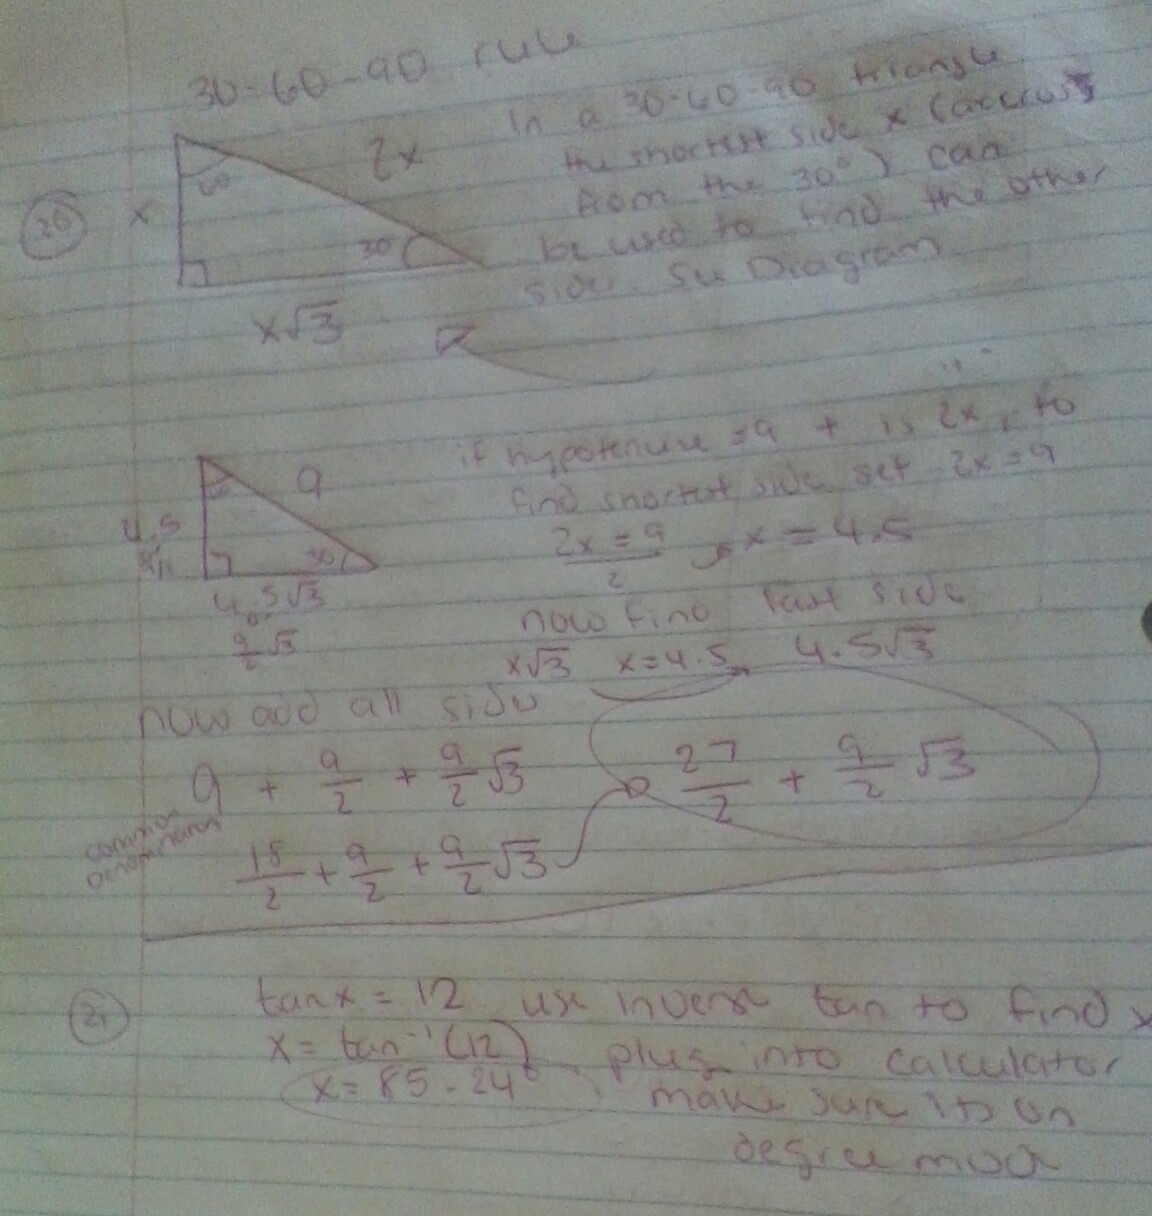 30-60-90 rule
In a 30-60-90 triangle
the shortest side x (accross
from the 30°) can
be used to find the other
side. See Diagram
20
x
60
2x
30
x√3
if hypotenuse = 9 + is 2x, to
find shortest side set 2x=9
2x = 9
2
x = 4.5
9
4.5
30
4.5√3
or
9/2 √3
now find last side
x√3 x=4.5 4.5√3
now add all side
9 + 9/2 + 9/2 √3
27/2 + 9/2 √3
common
denominators
18/2 + 9/2 + 9/2 √3
21
tanx = 12 use inverse tan to find x
x = tan⁻¹(12) plug into calculator
x = 85.24° make sure its on
degree mode